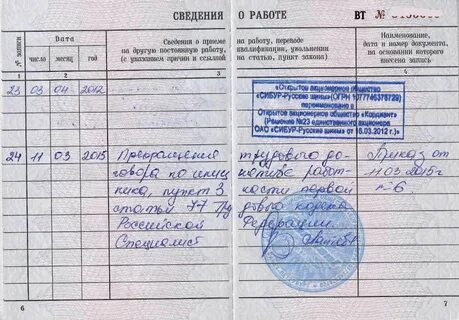 СВЕДЕНИЯ О РАБОТЕ ВТ №
№ записи
Дата
число месяц год
Сведения о приеме на работу, переводе
на другую постоянную работу, квалификации, увольнении
(с указанием причин и ссылкой на статью, пункт закона)
Наименование,
дата и номер документа,
на основании которого
внесена запись
1 2 3 4
23 03 04 2012
«Открытое акционерное общество
«СИБУР-Русские шины»(ОГРН 1077746378729)
переименовано в
Открытое акционерное общество «Кордиант»
(Решение №23 единственного акционера
ОАО «СИБУР-Русские шины» от 16.03.2012 г.)»
24 11 03 2015 Прекращение трудового до- Приказ от
говора по инициативе работ- 11.03.2015г.
ника, пункт 3 части первой
статьи 77 Трудового кодекса
Российской Федерации.
Специалист
6
7